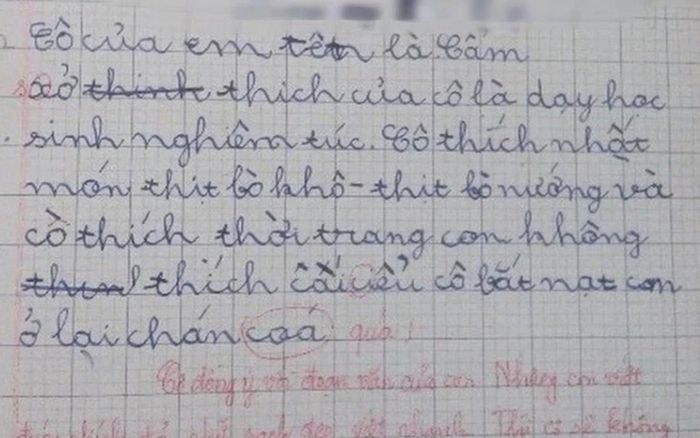 Cô của em tên là Cẩm
sở thinh thich của cô là dạy học
sinh nghiêm túc. Cô thích nhất
món thịt bò khô - thịt bò nướng và
cò thích thời trang con không
thích cô bắt nạt con
ở lại chán coá quá!
Cô đồng ý với đoạn văn của con Nhưng con viết